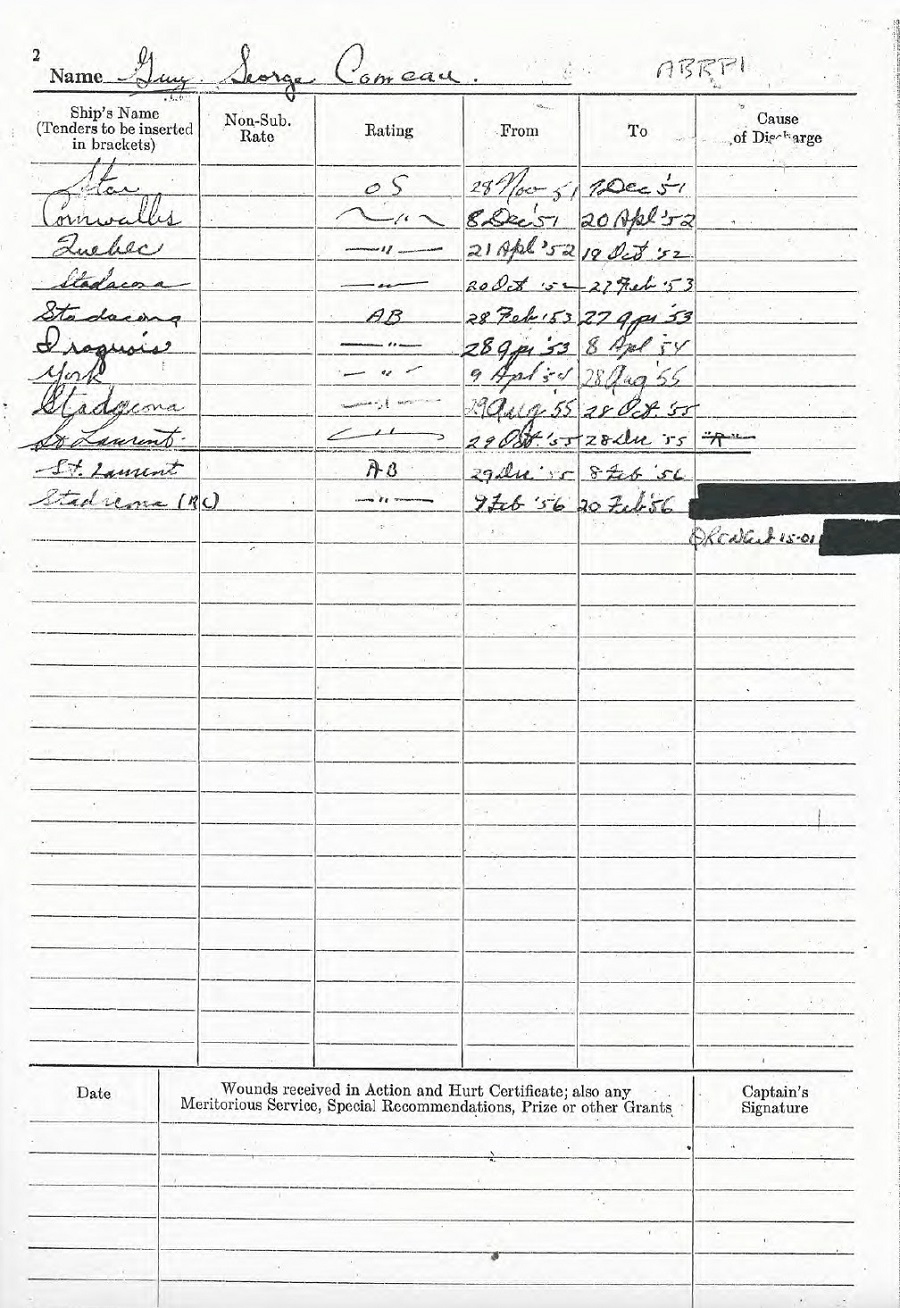 2
Name Guy George Comeau. ABRP1
Ship's Name (Tenders to be inserted in brackets) Non-Sub. Rate Rating From To Cause of Discharge
Star OS 28 Nov 51 7 Dec '51
Cornwallis —"— 8 Dec '51 20 Apl '52
Quebec —"— 21 Apl '52 19 Oct '52
Stadacona —"— 20 Oct '52 27 Feb '53
Stadacona AB 28 Feb '53 27 Apr '53
Iroquois —"— 28 Apr '53 8 Apl '54
York —"— 9 Apl '54 28 Aug '55
Stadacona —"— 29 Aug '55 28 Oct '55
St Laurent —"— 29 Oct '55 28 Dec '55 "R"
St. Laurent AB 29 Dec '55 8 Feb '56
Stadacona (RC) —"— 9 Feb '56 20 Feb '56
15-01
Date Wounds received in Action and Hurt Certificate; also any Meritorious Service, Special Recommendations, Prize or other Grants Captain's Signature